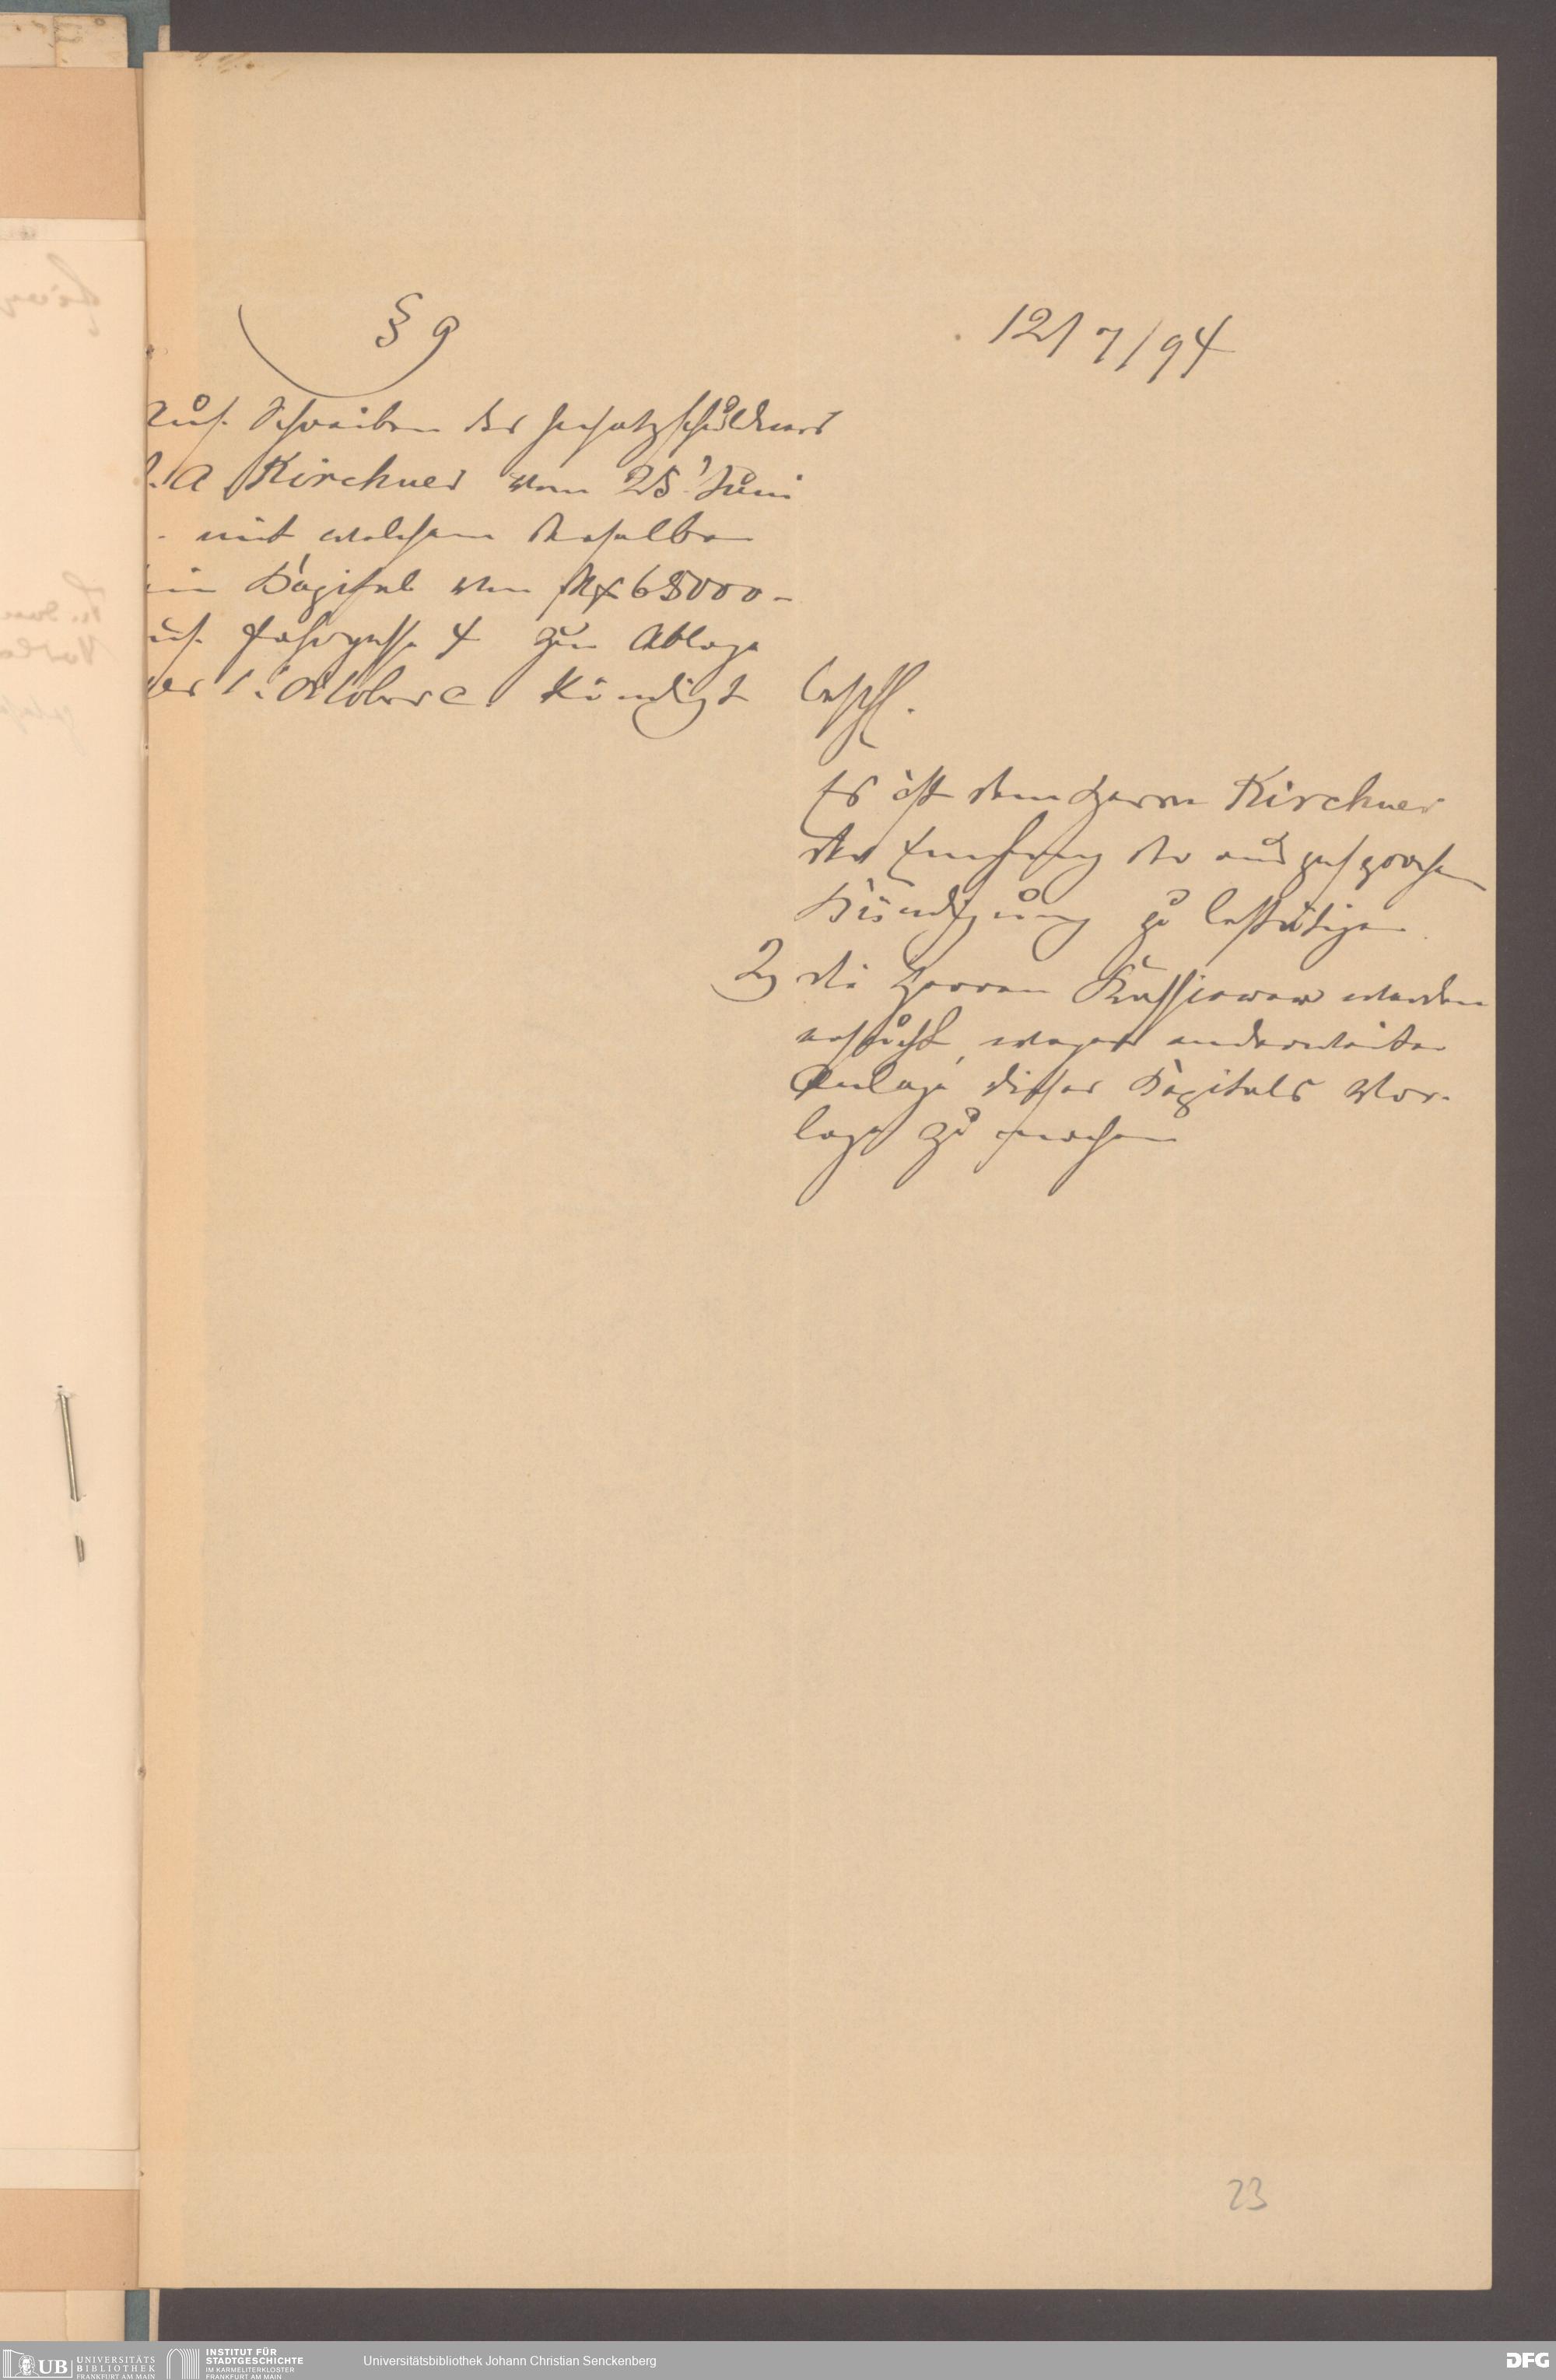 § 9
12/7/94
Auf Schreiben des Insatzschuldners
A Kirchner vom 25' Juni
mit welchem derselbe
ein Kapital von Mk 65000 -
auf Fahrgasse 4 zur Ablage
per 1. October c. kündigt
beschl.
Es ist dem Herrn Kirchner
der Empfang der ausgesprochen
Kündigung zu bestätigen
2) die Herren Kassierer werden
ersucht, wegen anderweiter
Anlage dieses Kapitals Vor-
lage zu machen
23
UB UNIVERSITÄTS BIBLIOTHEK FRANKFURT AM MAIN
INSTITUT FÜR STADTGESCHICHTE IM KARMELITERKLOSTER FRANKFURT AM MAIN
Universitätsbibliothek Johann Christian Senckenberg
DFG